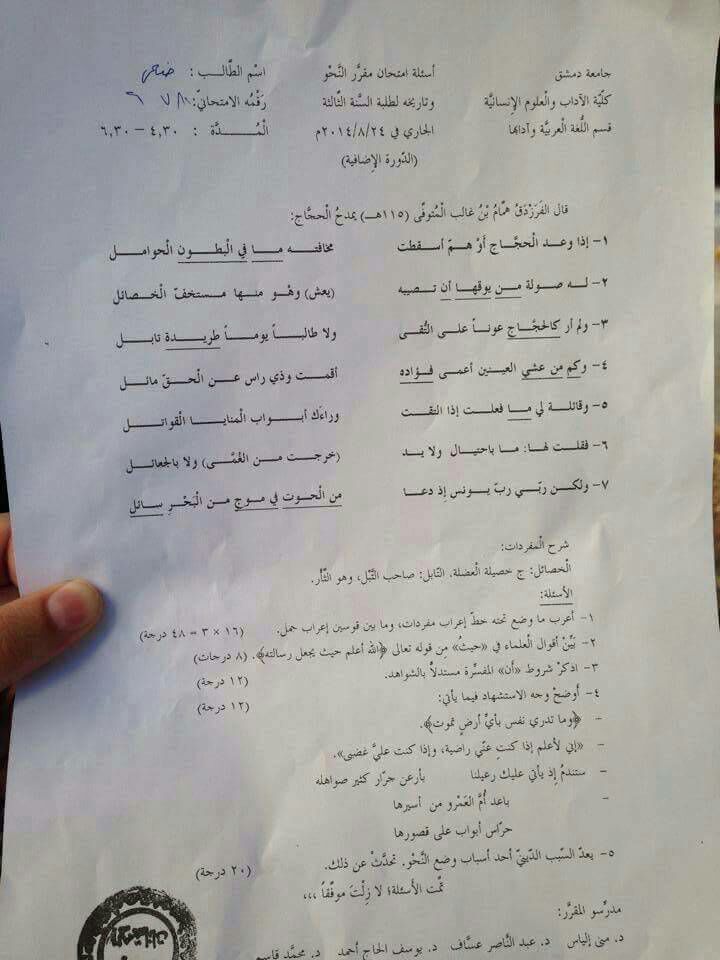 جامعة دمشق أسئلة امتحان مقرَّر النَّحْو اسْم الطَّالـب :
كلّيّة الآداب والْعلوم الإنسانيَّة وتاريخه لطلبة السَّنة الثّالثة رَقْمُه الامتحانيّ: ٦ ٧٨
قسم اللُّغة الْعربيَّة وآدابها الجاري في ٢٠١٤/٨/٢٤م الْمُـدَّة : ٤,٣٠ – ٦,٣٠
(الدَّورة الإضافية)
قال الفَرَزْدَقُ همّامُ بْنُ غالب الْمُتوفَّى (١١٥هـ) يمدحُ الْحجَّاج:
١- إذا وعد الْحجَّاج أَوْ همّ أسـقطت مخافتـه مـا في الْبطـون الْحوامـل
٢- لـه صولة مـن يوقهـا أن تـصيبه (يعش) وهْـو منـها مـستخفّ الْخـصائل
٣- ولم أر كالْحجَّـاج عونـاً علـى التُّقـى ولا طالبـاً يومـاً طريـدة تابـل
٤- وكم من عشي العينين أعمـى فـؤاده أقمـت وذي راس عـن الْحـقّ مائـل
٥- وقائلـة لي مـا فعلـت إذا التقـت وراءك أبـواب الْمنايـا الْقواتـل
٦- فقلـت لهـا: مـا باحتيـال ولا يـد (خرجـت مـن الْغُمَّـى) ولا بالْجعائـل
٧- ولكـن ربّـي ربّ يـونس إذ دعـا مـن الْحوت في مـوج مـن الْبَحْـرِ سـائل
شرح الْمفردات:
الْخصائل: ج حصيلة العضلة. التّابل: صاحب التَّبْل، وهو الثَّأر.
الأسئلة:
١- أعرب ما وضع تحته خطّ إعراب مفردات، وما بين قوسين إعراب جمل. (١٦ × ٣ = ٤٨ درجة)
٢- بَيِّنْ أقوال الْعلماء في «حيثُ» من قوله تعالى ﴿الله أعلم حيث يجعل رسالته﴾. (٨ درجات)
٣- اذكرْ شروط «أَن» الْمفسِّرة مستدلاًّ بالشواهد. (١٢ درجة)
٤- أَوضحْ وجه الاستشهاد فيما يأتي: (١٢ درجة)
- ﴿وما تدري نفس بأيِّ أرضٍ تموت﴾.
- «إني لأعلم إذا كنتِ عنّي راضية، وإذا كنت عليَّ غضبى».
- ستندمُ إذ يأتي عليك رعيلنا بأرعن جرّار كثير صواهله
- باعد أُمَّ العَمْرو من أسيرها
حرّاس أبواب على قصورها
٥- يعدّ السّبب الدّينيّ أحد أسباب وضع النَّحْو. تحدَّثْ عن ذلك. (٢٠ درجة)
تمَّت الأَسئلة؛ لا زِلْتَ موفَّقاً ،،،
مدرِّسو الْمقرَّر:
د. منى إلياس د. عبد النَّاصر عسَّاف د. يوسف الحاج أحمد د. محمَّد قاسم